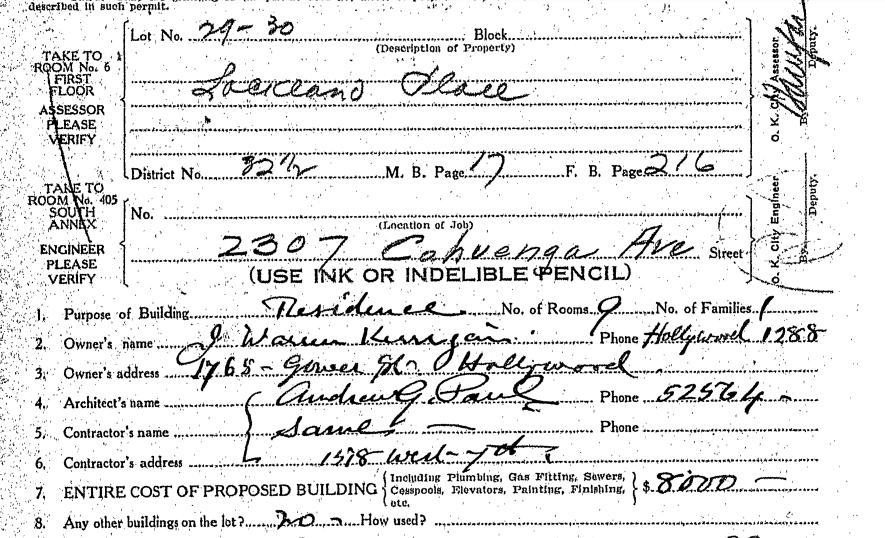 described in such permit.
Lot No. 29-30 Block
(Description of Property)
TAKE TO
ROOM No. 6
FIRST
FLOOR
ASSESSOR
PLEASE
VERIFY
Place
District No. 32½ M. B. Page 17 F. B. Page 216
O. K. City Assessor.
By Deputy.
TAKE TO
ROOM No. 405
SOUTH
ANNEX
ENGINEER
PLEASE
VERIFY
No.
(Location of Job)
2307 Cahuenga Ave Street
O. K. City Engineer.
By Deputy.
(USE INK OR INDELIBLE PENCIL)
1. Purpose of Building Residence No. of Rooms 9 No. of Families 1
2. Owner's name J. Warren Kerrigan Phone Hollywood 1288
3. Owner's address 1765 - Gower St. Hollywood
4. Architect's name Andrew G. Paul Phone 52564 -
5. Contractor's name Same — Phone
6. Contractor's address West - 7th
7. ENTIRE COST OF PROPOSED BUILDING { Including Plumbing, Gas Fitting, Sewers, Cesspools, Elevators, Painting, Finishing, etc. } $ 8000 —
8. Any other buildings on the lot? no - How used?